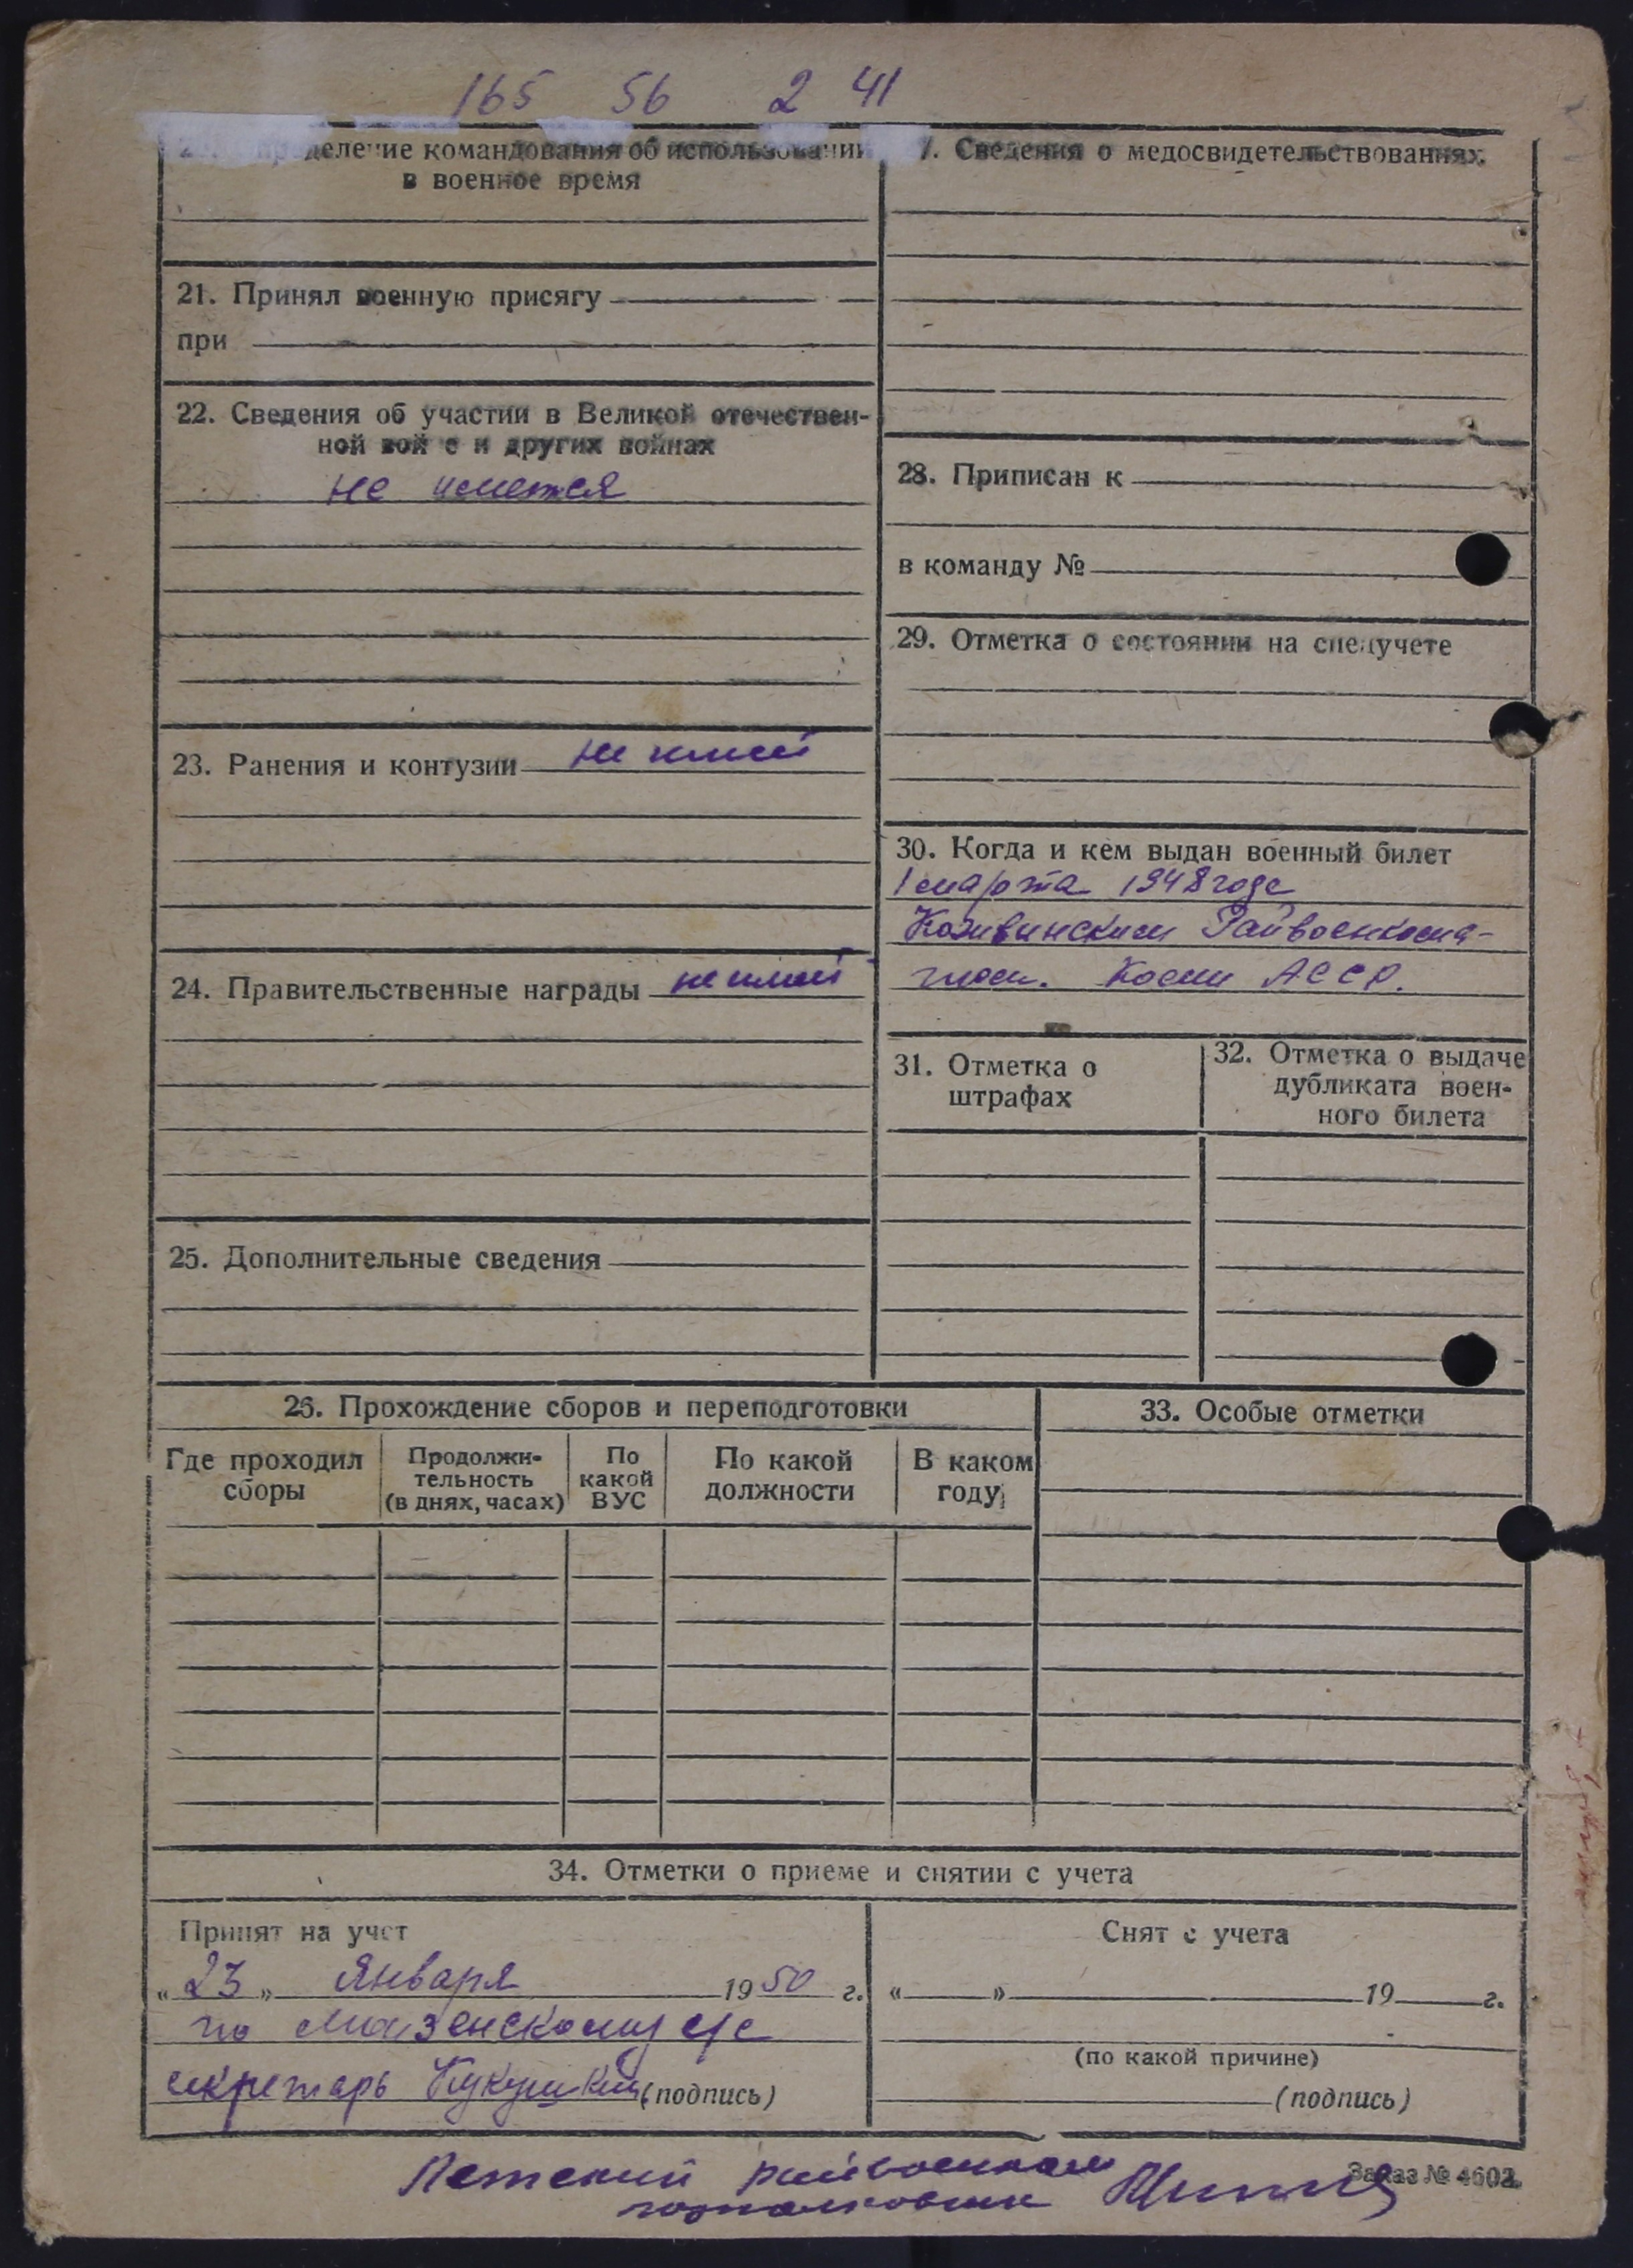 165 56 2 41
деление командования об использовании
в военное время
21. Принял военную присягу
при
22. Сведения об участии в Великой отечествен-
ной вой е и других войнах
не имеется
23. Ранения и контузии не имеет
24. Правительственные награды не имеет
25. Дополнительные сведения
7. Сведения о медосвидетельствованиях
28. Приписан к
в команду №
29. Отметка о состоянии на спецучете
30. Когда и кем выдан военный билет
1 марта 1948 года
Кожвинским Райвоенкома-
том. Коми АССР.
31. Отметка о
штрафах
32. Отметка о выдаче
дубликата воен-
ного билета
26. Прохождение сборов и переподготовки
Где проходил
сборы
Продолжи-
тельность
(в днях, часах)
По
какой
ВУС
По какой
должности
В каком
году
33. Особые отметки
34. Отметки о приеме и снятии с учета
Принят на учет
"23" Января 1950 г.
по Мозенскому с/с
секретарь (подпись)
Снят с учета
" " 19 г.
(по какой причине)
(подпись)
Летский райвоенком
подполковник
Заказ № 4602.